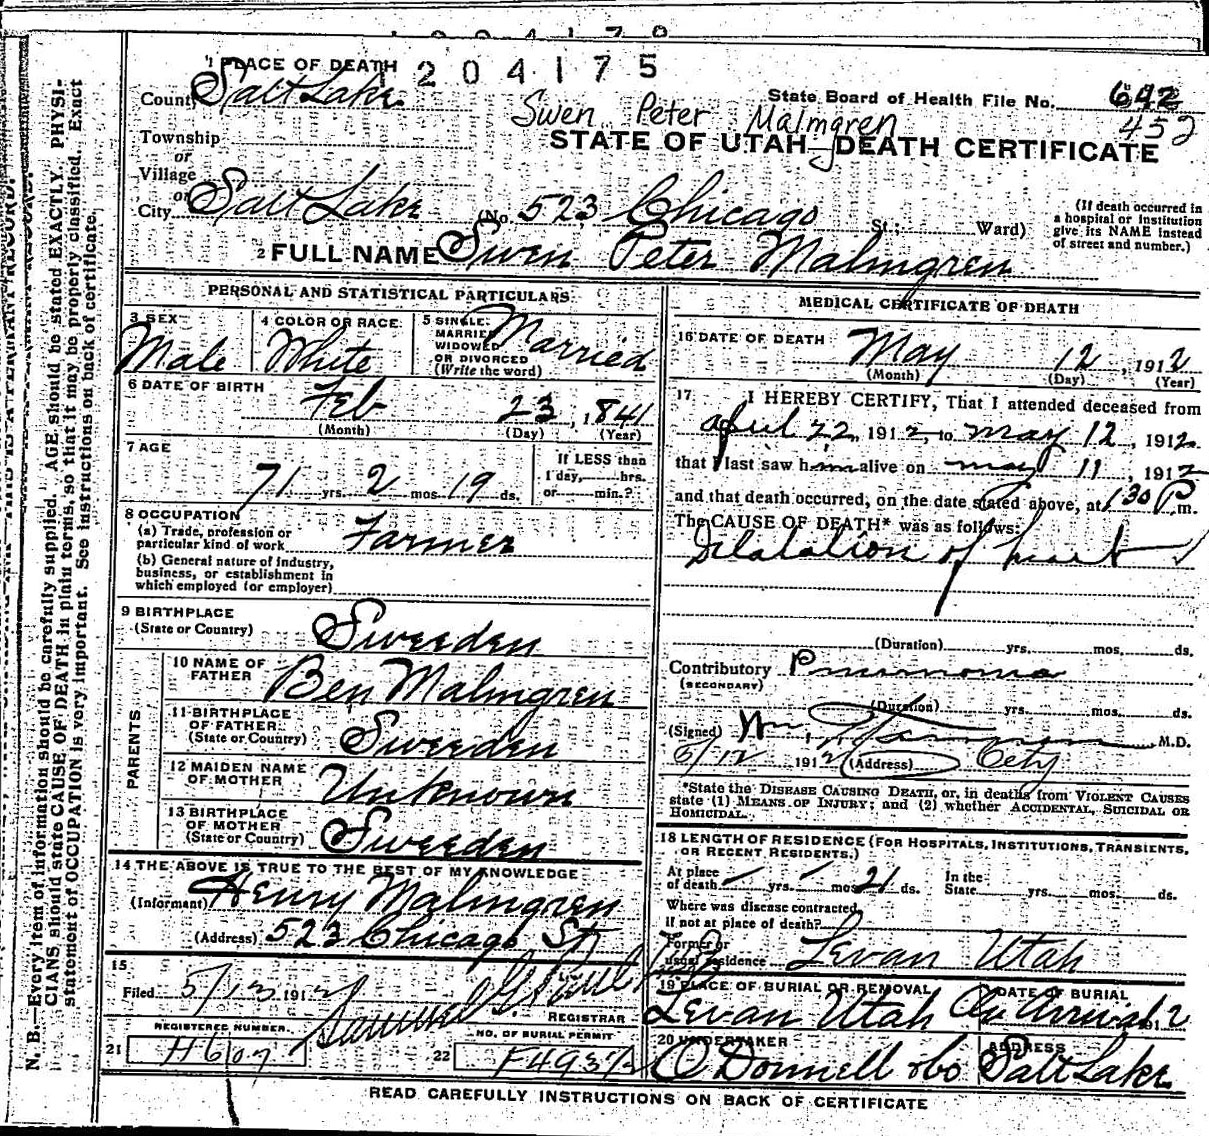 1204175
1 PLACE OF DEATH
County Salt Lake
State Board of Health File No. 692
452
Swen Peter Malmgren
Township
or
Village
or
City Salt Lake (No. 523 Chicago St.; Ward)
STATE OF UTAH—DEATH CERTIFICATE
(If death occurred in
a hospital or institution
give its NAME instead
of street and number.)
2 FULL NAME Swen Peter Malmgren
PERSONAL AND STATISTICAL PARTICULARS
3 SEX
Male
4 COLOR OR RACE
White
5 SINGLE,
MARRIED
WIDOWED
OR DIVORCED
(Write the word)
Married
6 DATE OF BIRTH
Feb 23, 1841
(Month) (Day) (Year)
7 AGE
71 yrs. 2 mos. 19 ds.
If LESS than
1 day, hrs.
or min.?
8 OCCUPATION
(a) Trade, profession or
particular kind of work Farmer
(b) General nature of industry,
business, or establishment in
which employed (or employer)
9 BIRTHPLACE
(State or Country) Sweeden
PARENTS
10 NAME OF
FATHER Ben Malmgren
11 BIRTHPLACE
OF FATHER
(State or Country) Sweeden
12 MAIDEN NAME
OF MOTHER Unknown
13 BIRTHPLACE
OF MOTHER
(State or Country) Sweeden
14 THE ABOVE IS TRUE TO THE BEST OF MY KNOWLEDGE
(Informant) Henry Malmgren
(Address) 523 Chicago St
15
Filed 5/13 1912
REGISTRAR
REGISTERED NUMBER.
21 H607
NO. OF BURIAL PERMIT
22
MEDICAL CERTIFICATE OF DEATH
16 DATE OF DEATH
May 12, 1912
(Month) (Day) (Year)
17 I HEREBY CERTIFY, That I attended deceased from
april 22, 1912, to may 12, 1912
that I last saw him alive on may 11, 1912
and that death occurred, on the date stated above, at 1 30 P.m.
The CAUSE OF DEATH* was as follows:
Dilatation of heart
(Duration) yrs. mos. ds.
Contributory Pneumonia
(SECONDARY)
(Duration) yrs. mos. ds.
(Signed) M.D.
5/12 1912 (Address) City
*State the DISEASE CAUSING DEATH, or, in deaths from VIOLENT CAUSES
state (1) MEANS OF INJURY; and (2) whether ACCIDENTAL, SUICIDAL OR
HOMICIDAL.
18 LENGTH OF RESIDENCE (FOR HOSPITALS, INSTITUTIONS, TRANSIENTS,
OR RECENT RESIDENTS.)
At place
of death yrs. mos. 21 ds.
In the
State yrs. mos. ds.
Where was disease contracted
if not at place of death?
Former or
usual residence Levan Utah
19 PLACE OF BURIAL OR REMOVAL
Levan Utah
DATE OF BURIAL
On Arrival 1912
20 UNDERTAKER
O Donnell &Co
ADDRESS
Salt Lake
READ CAREFULLY INSTRUCTIONS ON BACK OF CERTIFICATE
N. B.—Every item of information should be carefully supplied. AGE should be stated EXACTLY. PHYSI-
CIANS should state CAUSE OF DEATH in plain terms, so that it may be properly classified. Exact
statement of OCCUPATION is very important. See instructions on back of certificate.